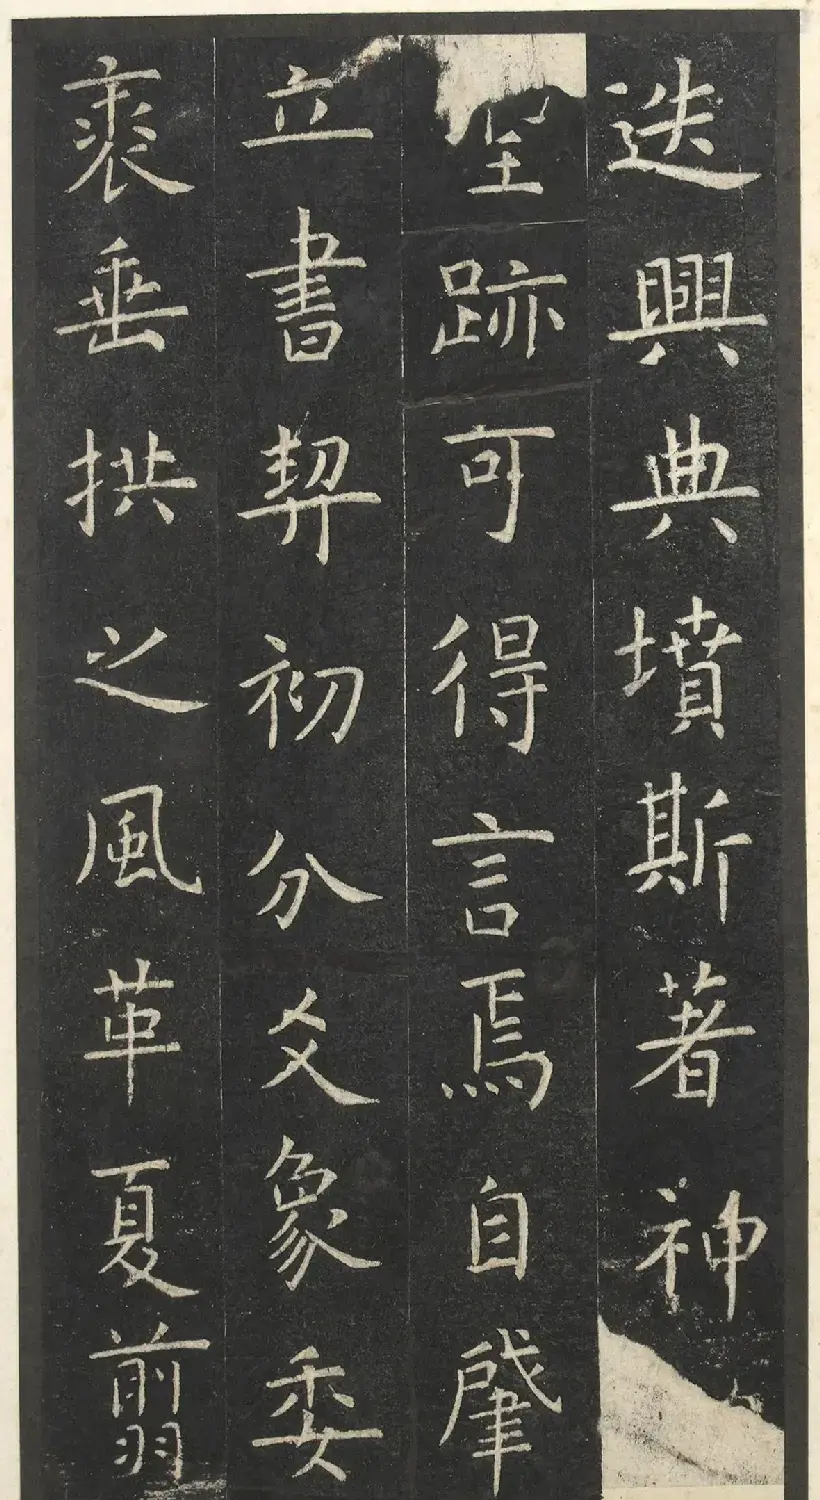 迭興典墳斯著神
聖跡可得言焉自肇
立書契初分爻象委
裘垂拱之風革夏翦